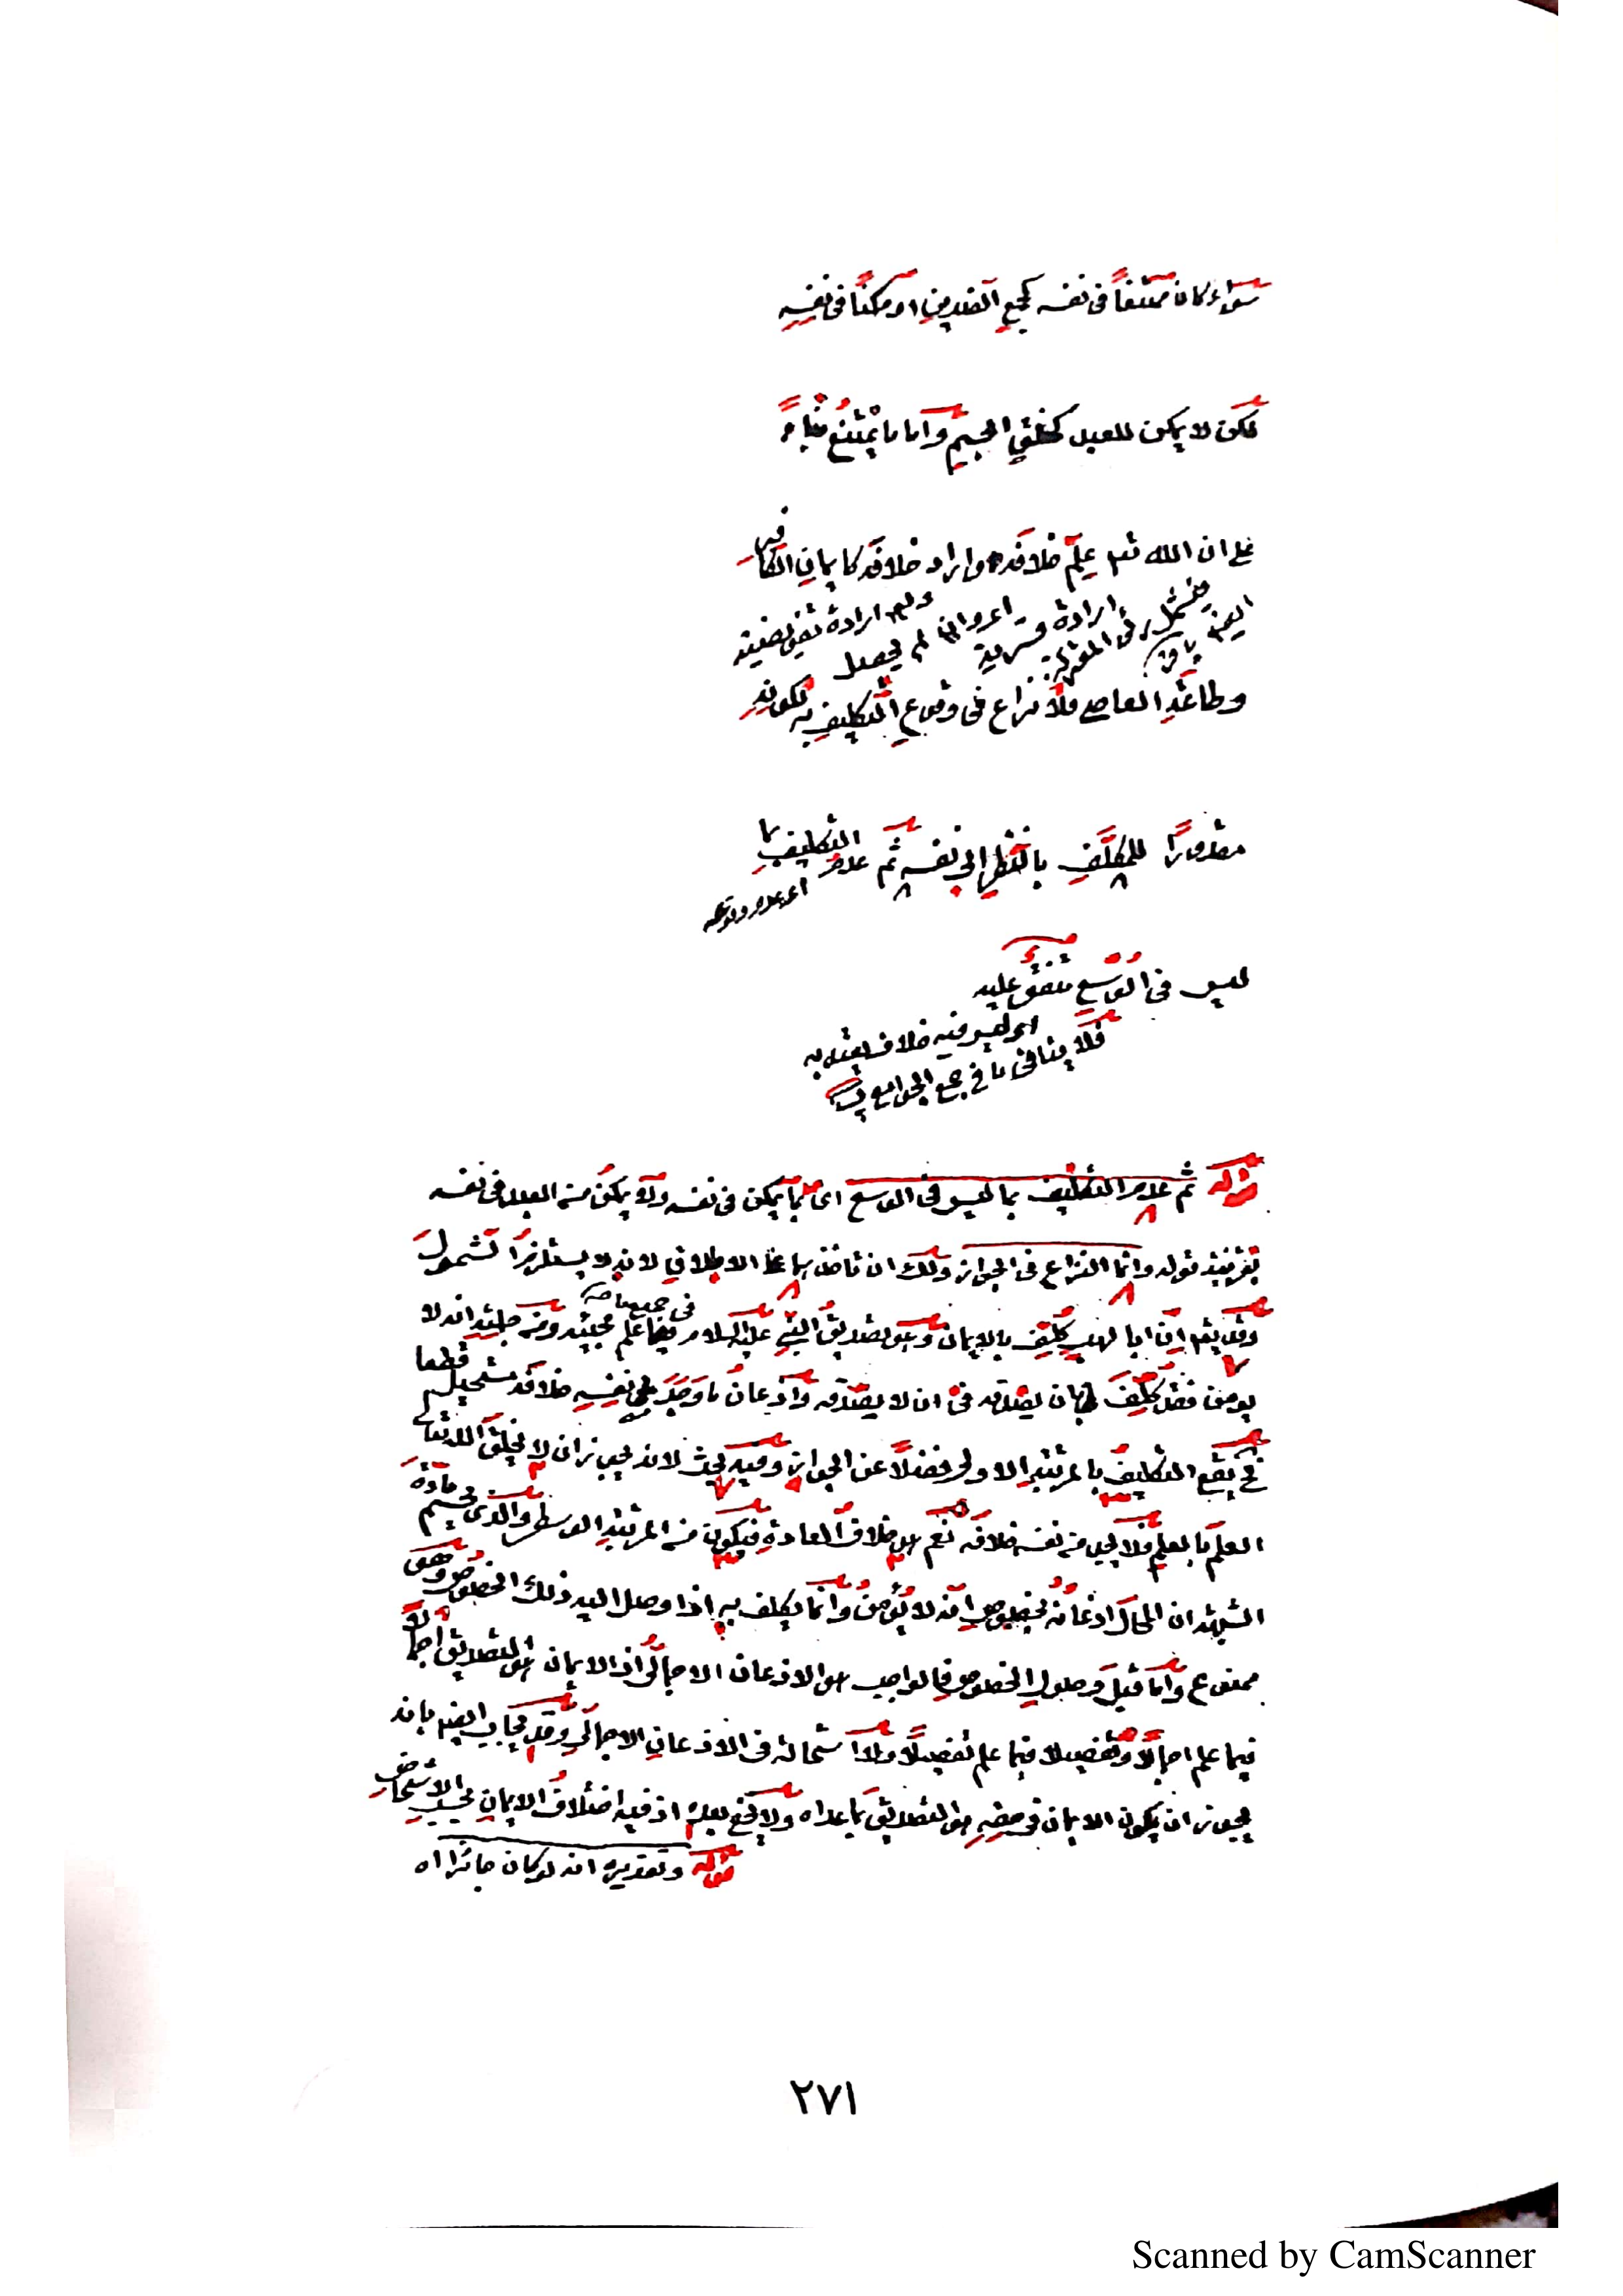 سواء كان ممتنعاً فى نفسه كجمع الضدين او ممكناً فى نفسه
لكن لا يمكن للعبد كخلق الجسم وأما ما يمتنع بناءً
على ان الله تعـ علم خلافه او اراد خلافه كايمان الكافر
ولهم ارادة تفويضية
ارادة قسرية
اى وان لم يحصل
وطاعة العاصى فلا نزاع فى وقوع التكليف به لكونه
مقدوراً للمكلف بالنظر الى نفسه ثم عدم التكليف بما
اى عدم وقوعه
ليس فى الوسع متفق عليه
اى ليس فيه خلاف يعتد به
فلا ينافى ما فى جمع الجوامع
قوله ثم عدم التكليف بما ليس فى الوسع اى بما يمكن فى نفسه ولا يمكن من العبد فى نفسه
بقرينة قوله وانما النزاع فى الجواز ولك ان تأخذ بما على الاطلاق لانه لا يستلزم الشمول
وقد يقـ ان ابا لهب كلف بالايمان وهو تصديق النبى عليه السلام فيما علم مجيئه ومن جملته انه لا
فى جميع ما
يؤمن فقد كلف بان يصدقه فى ان لا يصدقه واذعان ما وجد فى نفسه خلافه مستحيل قطعا
فح يقع التكليف بالمرتبة الاولى فضلاً عن الجواز وفيه بحث لانه يجوز ان لا يخلق الله تعالى
العلم بالعلم فلا يجد من نفسه خلافه نعم هو خلاف العادة فيكون من المرتبة الوسطى والذى يحسم مادة
الشبهة ان المحال اذعانه بخصوص انه لا يؤمن وانما يكلف به اذا وصل اليه ذلك الخصوص وهو
ممنوع واما قبل وصول الخصوص فالواجب هو الاذعان الاجمالى اذ الايمان هو التصديق اجمالا
فيما علم اجمالا وتفصيلا فيما علم تفصيلا ولا استحالة فى الاذعان الاجمالى وقد يجاب ايضا بانه
يجوز ان يكون الايمان فى حقه هو التصديق بما عداه ولا يخفى بعده اذ فيه اختلاف الايمان بحسب الاشخاص
قوله وتقديره انه لو كان جائزا اه
٢٧١
Scanned by CamScanner